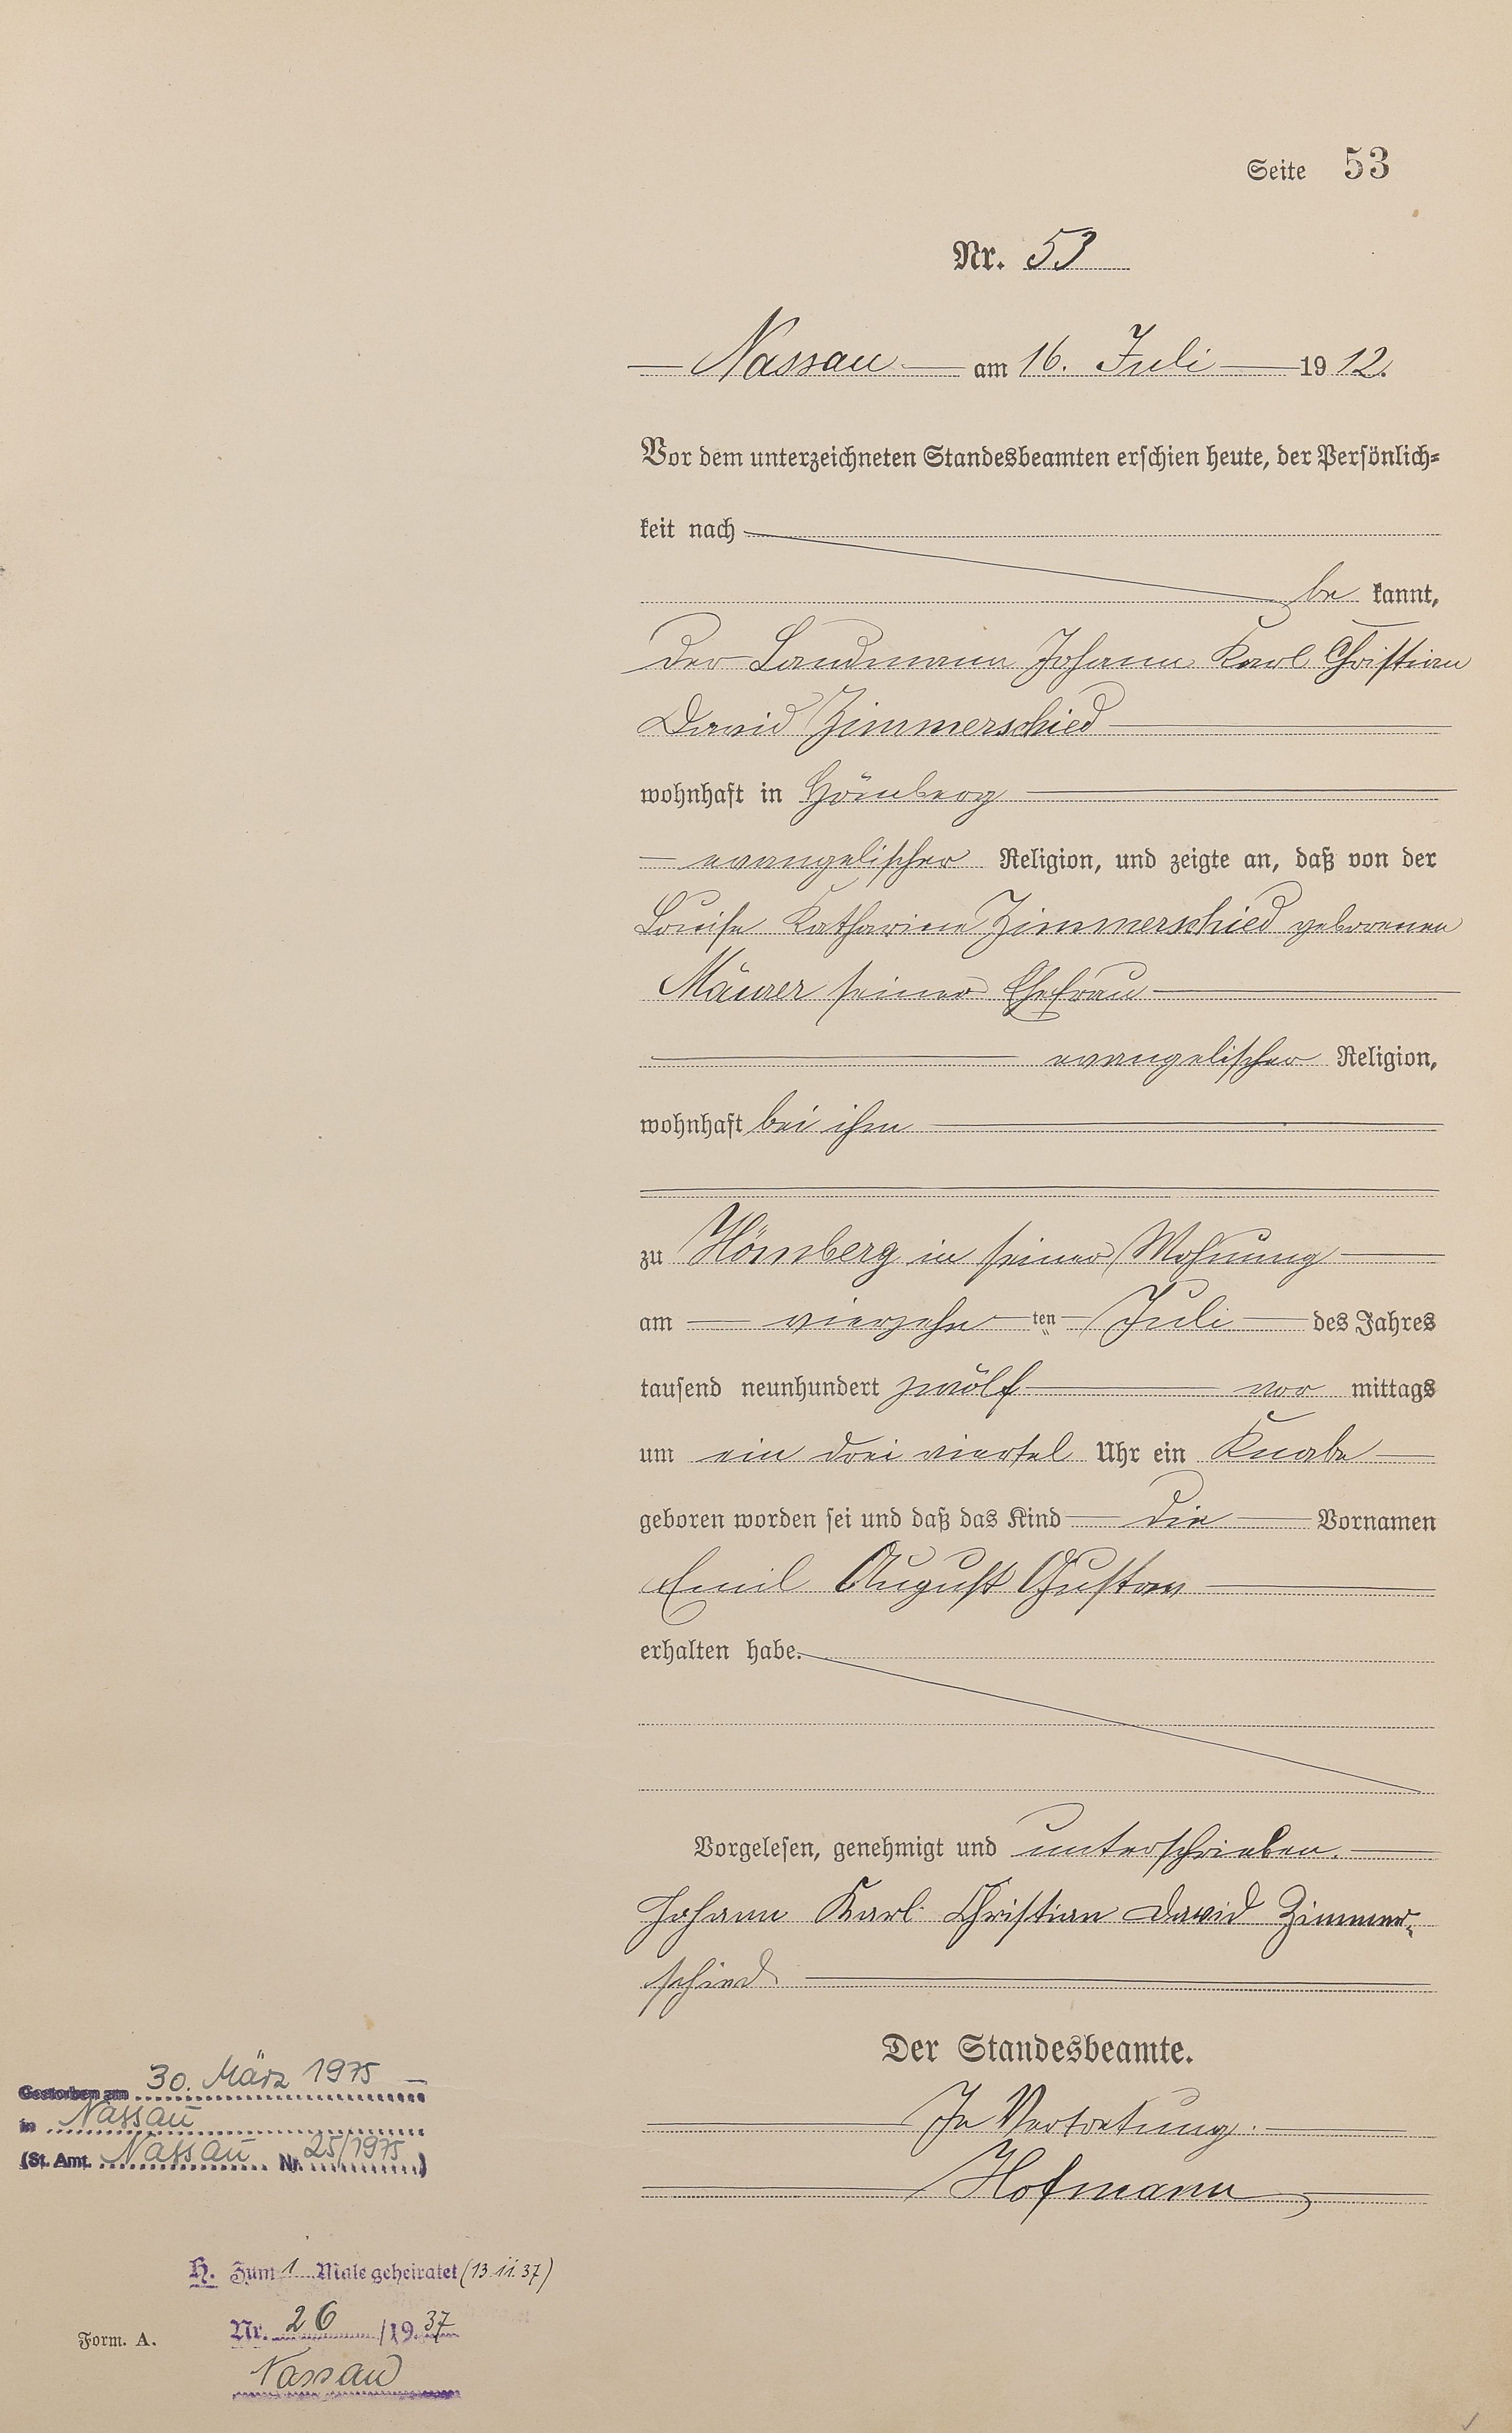 Seite 53
Nr. 53
Nassau am 16. Juli 1912.
Vor dem unterzeichneten Standesbeamten erschien heute, der Persönlich-
keit nach
be kannt,
der Landmann Johann Karl Christian
David Zimmerschied
wohnhaft in Hömberg
evangelischer Religion, und zeigte an, daß von der
Louise Katharine Zimmerschied geborenen
Mäurer seiner Ehefrau
evangelischer Religion,
wohnhaft bei ihm
zu Hömberg in seiner Wohnung
am vierzehn ten Juli des Jahres
tausend neunhundert zwölf vor mittags
um ein drei viertel Uhr ein Knabe
geboren worden sei und daß das Kind die Vornamen
Emil August Gustav
erhalten habe.
Vorgelesen, genehmigt und unterschrieben.
Johann Karl Christian David Zimmer-
schied
Der Standesbeamte.
In Vertretung.
Hofmann
Gestorben am 30. März 1975
in Nassau
(St. Amt. Nassau Nr. 25/1975)
H. Zum 1 Male geheiratet (13.11.37)
Nr. 26 /1937
Nassau
Form. A.